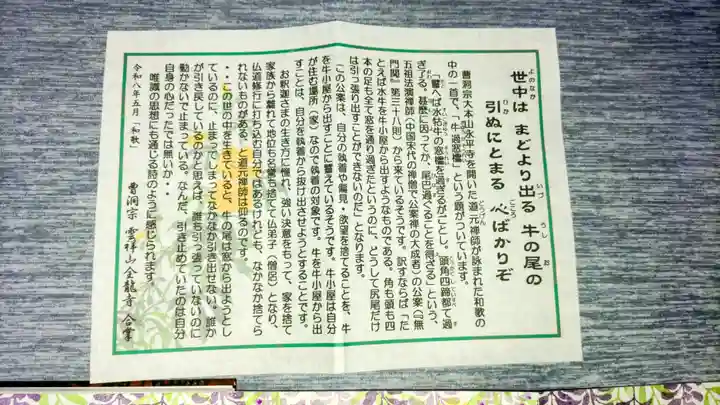 世中は まどより出る 牛の尾の
引ぬにとまる 心ばかりぞ
曹洞宗大本山永平寺を開いた道元禅師が詠まれた和歌の
中の一首で、「牛過窓櫺」という題がついています。
「譬へば水牯牛の窓櫺を過ぎるがごとし、頭角四蹄都て過
ぎ了る、甚麼に因ってか、尾巴過ぐることを得ざる」という、
五祖法演禅師（中国宋代の禅僧で公案禅の大成者）の公案（『無
門関』第三十八則）から来ているそうです。訳すならば「た
とえば水牛を牛小屋から出すようなものである。角も頭も四
本の足も全て窓を通り過ぎたというのに、どうして尻尾だけ
は引っ張り出すことができないのだ」となります。
この公案は、自分の執着や偏見・欲望を捨てることを、牛
を牛小屋から出すことに譬えているそうです。牛小屋は自分
が住む場所（家）なので執着の対象です。牛を牛小屋から出
すことは、自分を執着から抜け出させようとすることです。
お釈迦さまの生き方に憧れ、強い決意をもって、家を捨て
家族から離れて地位も名誉も捨てて仏弟子（僧侶）となり、
仏道修行に打ち込む自分ではあるけれども、なかなか捨てら
れないものがある。と道元禅師は仰るのです。
・・この世の中を生きていると、牛の尾は窓から出ようとし
ているのに、止まってしまってなかなか引き出せない。誰か
が引き戻しているのかと思えば、誰も引っ張っていないのに
動かないで止まっている。なんだ、引き止めていたのは自分
自身の心だったでは無いか・・
唯識の思想にも通じる詩のように感じられます。
令和八年五月「和歌」 曹洞宗 雲祥山全龍寺 合掌